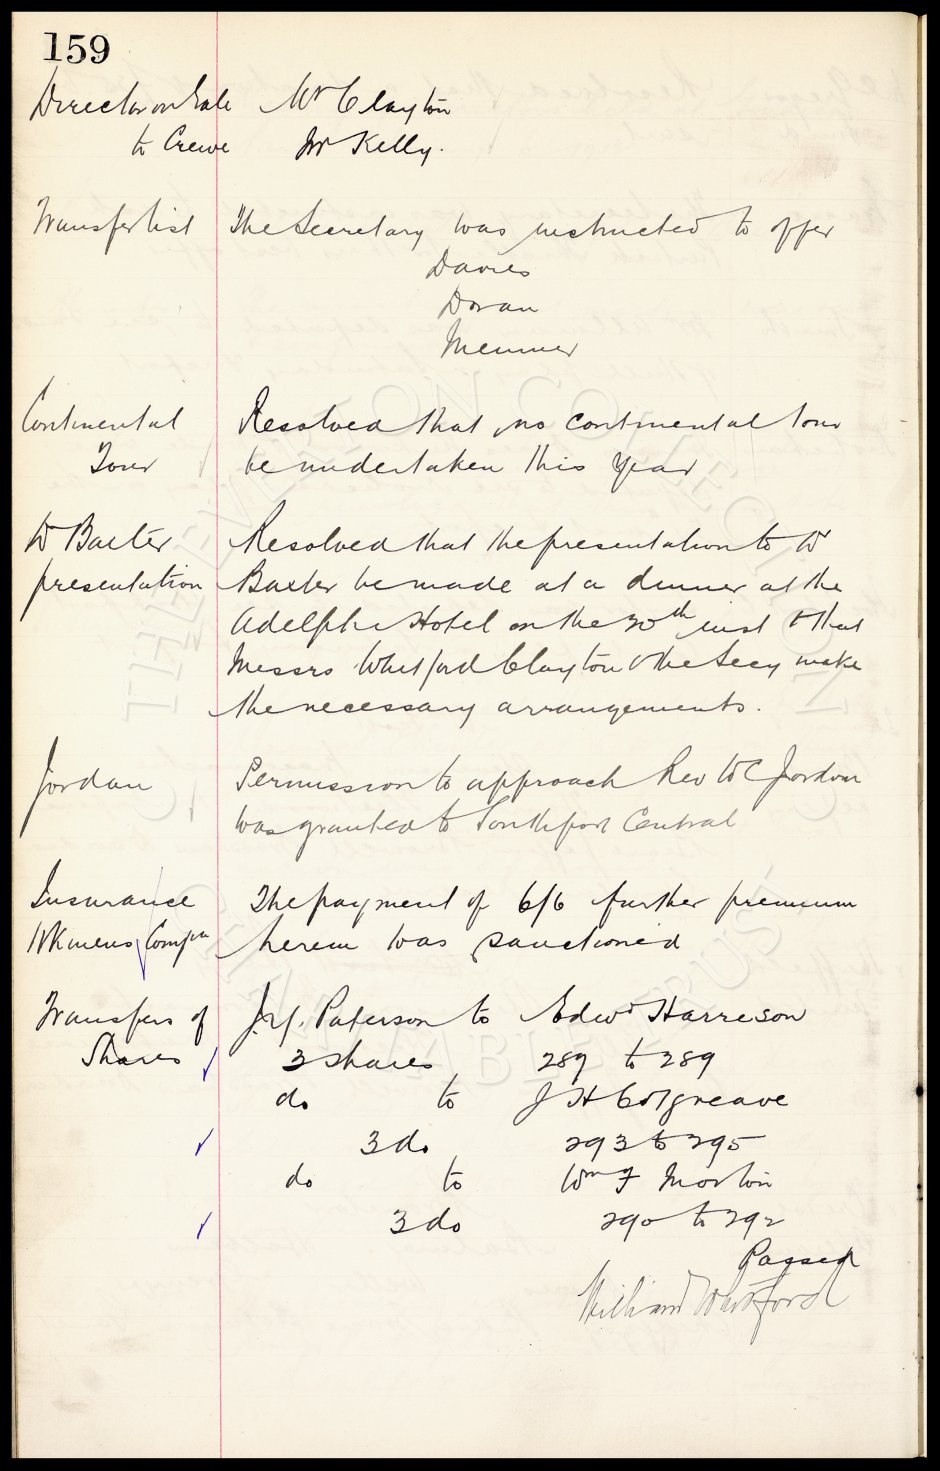 159
Director on Gate Mr Clayton
to Crewe Mr Kelly.
Transfer list The Secretary was instructed to offer
Davies
Doran
Meunier
Continental Resolved that no continental tour
Tour be undertaken this year
Dr Baxter Resolved that the presentation to Dr
presentation Baxter be made at a dinner at the
Adelphi Hotel on the 30th inst & that
Messrs Whitford Clayton & the Secy make
the necessary arrangements.
Jordan Permission to approach Rev W C Jordan
was granted to Southport Central
Insurance The payment of 6/6 further premium
Wkmens Compn herein was sanctioned
Transfers of J.Y. Paterson to Edwd Harreson
Shares 3 shares 287 to 289
do to J H Colgreave
3 do 293 to 295
do to Wm F Morton
3 do 290 to 292
Passed
William Whitford
THE EVERTON COLLECTION
CHARITABLE TRUST